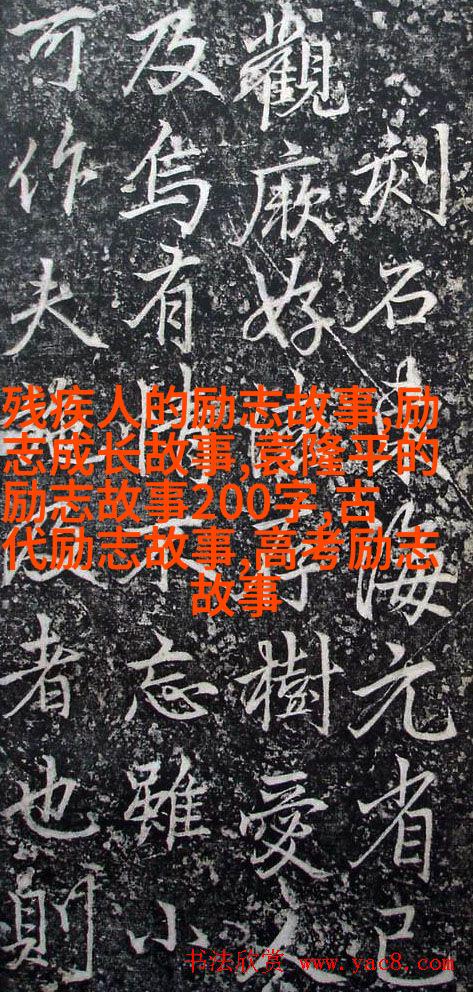 刻石海元省已
觀厥好樹愛
及焉有不忘雖小
可作夫者也則
残疾人的励志故事,励
志成长故事,袁隆平的
励志故事200字,古
代励志故事,高考励志
故事
书法欣赏 www.yac8.com